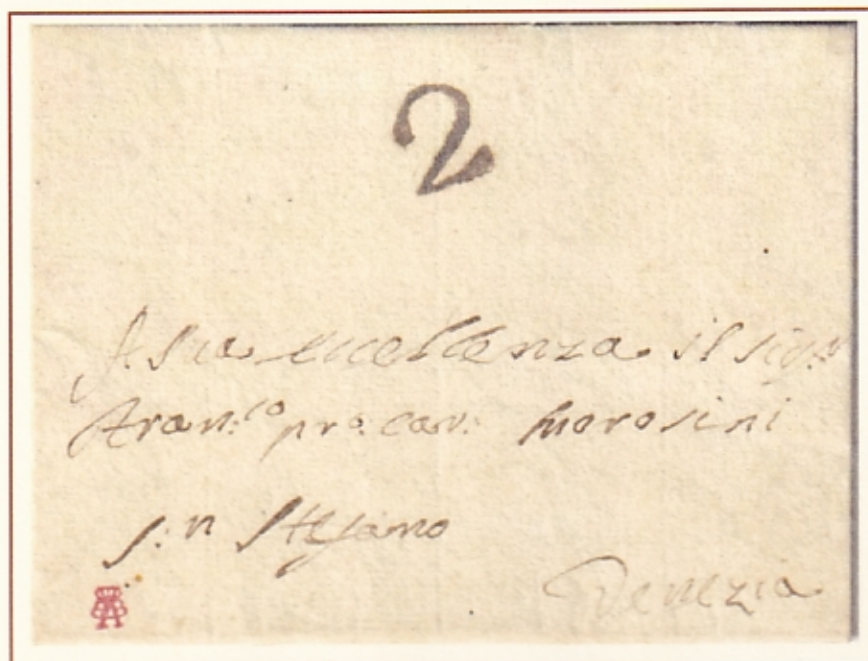 2
A sua eccellenza il sig:r
Fran:co pro: cav: Morosini
S:n Steffano
Venezia
A